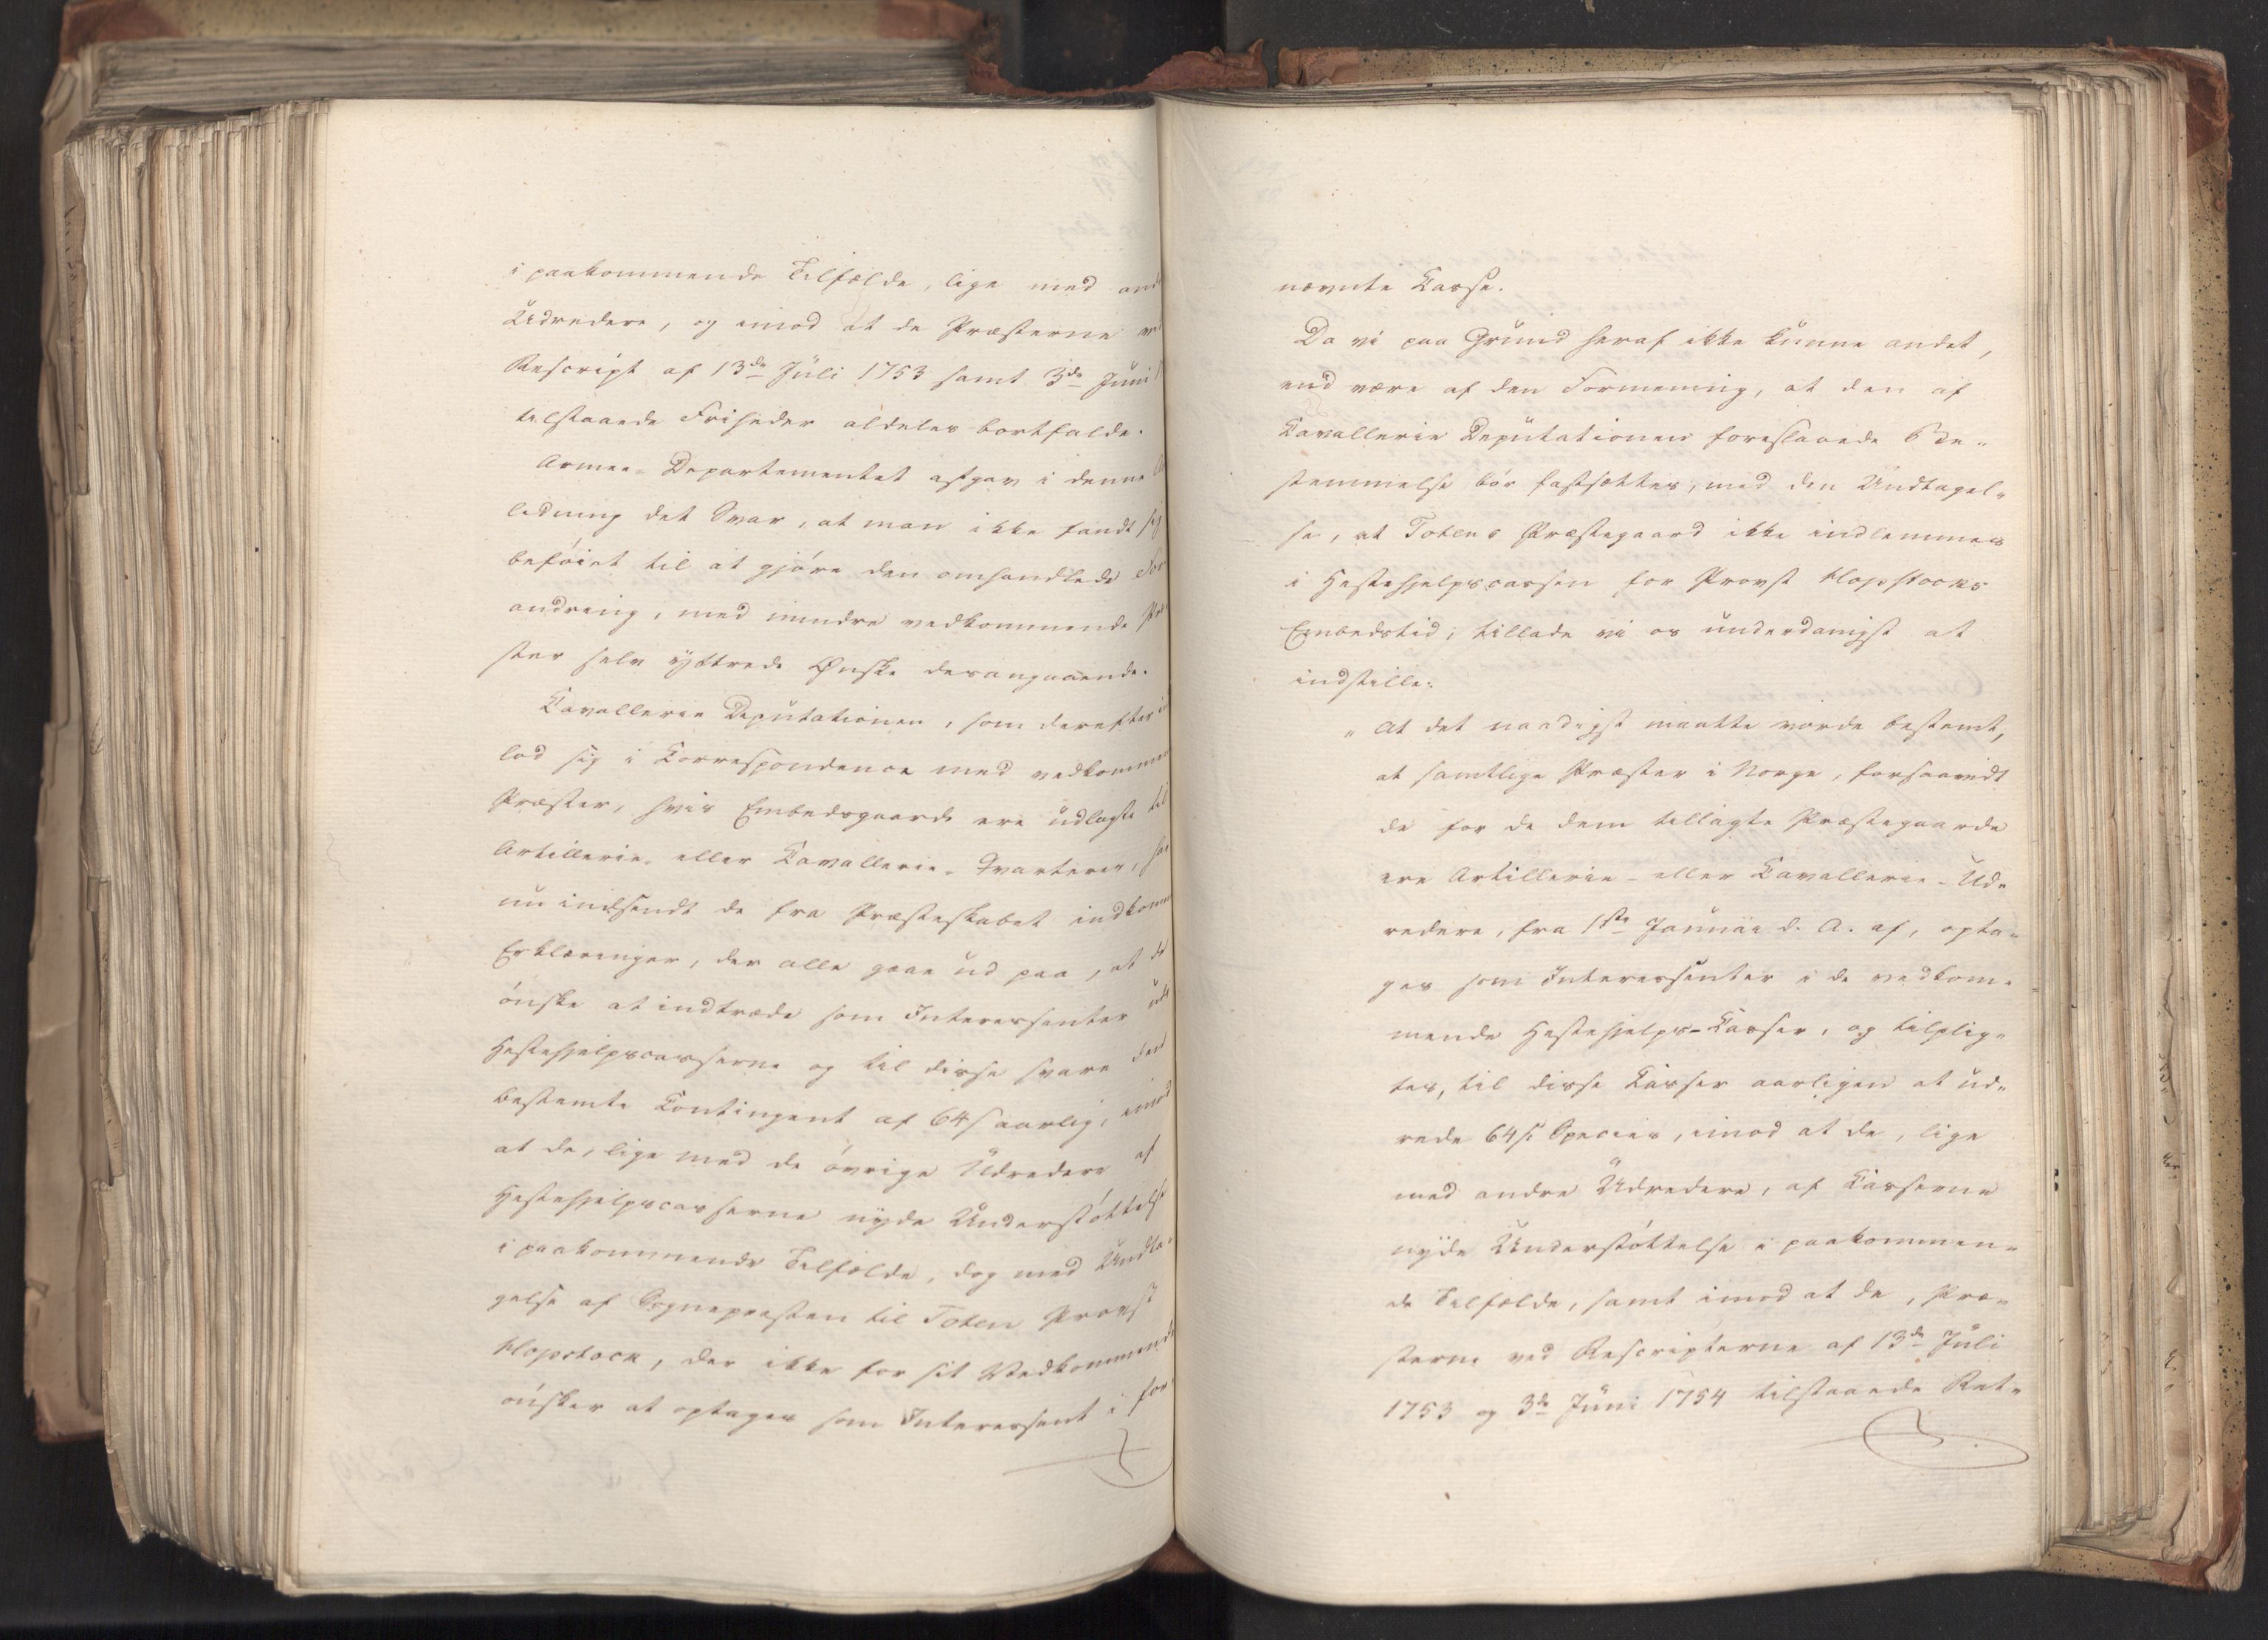 i paakommende Tilfælde, lige med and
Udredere, og imod at de Præsterne ve
Rescript af 13de Juli 1753 samt 3de Juni 1
tilstaaede Friheder aldeles bortfalde.
Armee-Departementet afgav i denne A
ledning det Svar, at man ikke fandt sig
beföiet til at gjöre den omhandlede For
andring, med mindre vedkommende Præ
ster selv yttrede Ønske desangaaende.
Cavallerie Deputationen, som derefter i
lod sig i Correspondence med vedkommen
Præster, hvis Embedsgaarde ere udlagte til
Artillerie- eller Cavallerie-Qvarterer, har
nu indsendt de fra Præsteskabet indkomm
Erklæringer, der alle gaae ud paa, at de
önske at indtræde som Interessenter udi
Hestehjelpscasserne og til disse svare den
bestemte Contingent af 64 s aarlig, imod
at de, lige med de övrige Udredere af
Hestehjelpscasserne nyde Understöttelse
i paakommende Tilfælde, dog med Undta-
gelse af Sognepresten til Toten Provst
Hopstock, der ikke for sit Vedkommende
önsker at optages som Interessent i for
nævnte Casse.
Da vi paa Grund heraf ikke kunne andet,
end være af den Formening, at den af
Cavallerie Deputationen foreslaaede Be-
stemmelse bör fastsættes, med den Undtagel-
se, at Totens Præstegaard ikke indlemmes
i Hestehjelpscassen for Provst Hopstocks
Embedstid; tillade vi os underdanigst at
indstille:
"At det naadigst maatte vorde bestemt,
at samtlige Præster i Norge, forsaavidt
de for de dem tillagte Præstegaarde
ere Artillerie- eller Cavallerie-Ud-
redere, fra 1ste Januar d. A. af, opta-
ges som Interessenter i de vedkom-
mende Hestehjelps-Casser, og tilplig-
tes, til disse Casser aarligen at ud-
rede 64 s Species, imod at de, lige
med andre Udredere, af Casserne
nyde Understöttelse i paakommen-
de Tilfælde, samt imod at de, Præ-
sterne ved Rescripterne af 13de Juli
1753 og 3de Juni 1754 tilstaaede Ret-